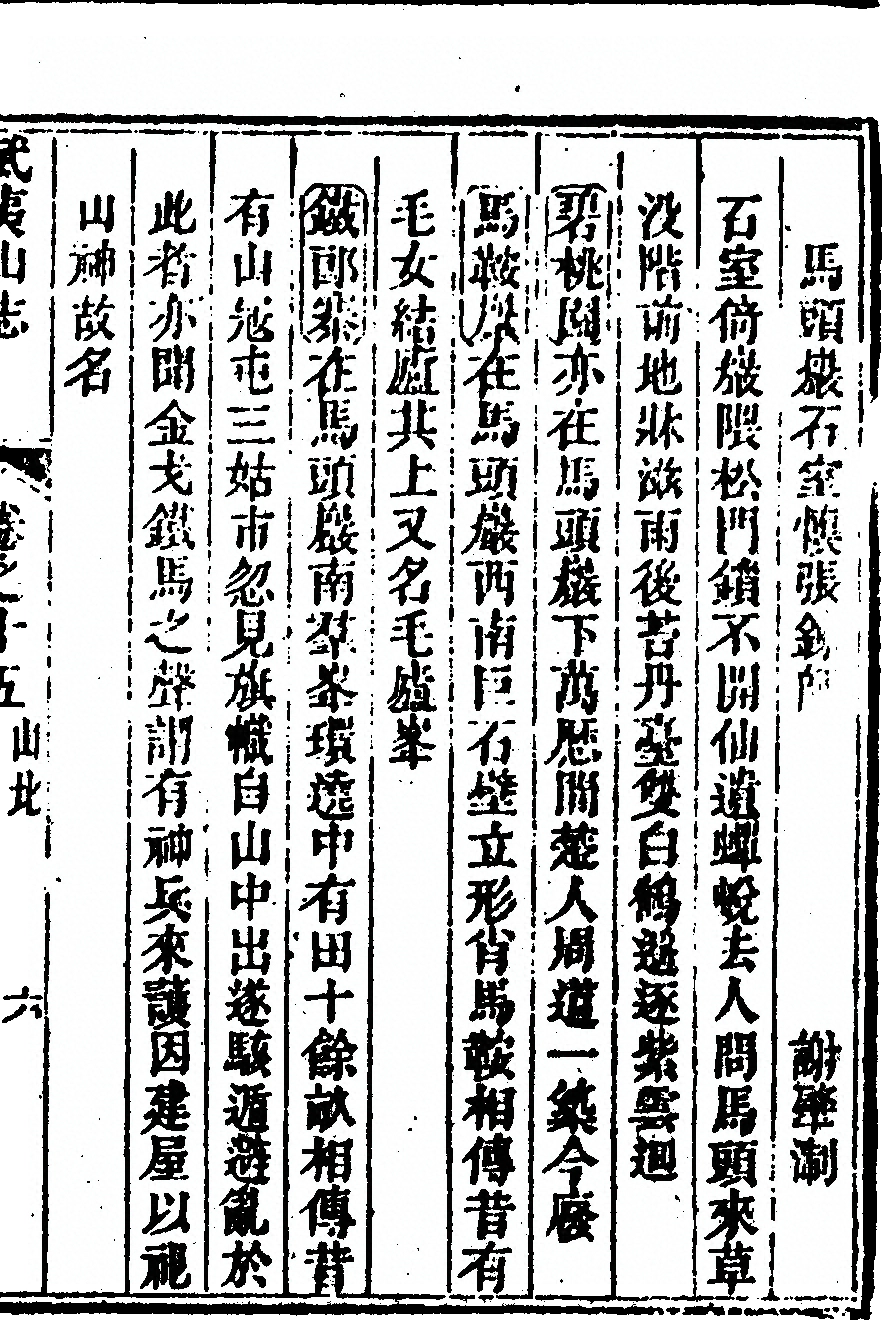 馬頭巖石室懷張 謝肇淛
石室倚巖隈松門鎖不開仙遺蟬蛻去人問馬頭來草
没階前地牀滋雨後苔丹臺雙白鶴遥逐紫雲迴
碧桃園亦在馬頭巖下萬歴間楚人周道一築今廢
馬鞍巖在馬頭巖西南巨石壁立形肖馬鞍相傳昔有
毛女結廬其上又名毛廬峯
鐵郎寨在馬頭巖南羣峯環遶中有田十餘畝相傳昔
有山冦屯三姑市忽見旗幟自山中出遂駭遁避亂於
此者亦聞金戈鐵馬之聲謂有神兵來護因建屋以祀
山神故名
武夷山志 卷之十五 山北 六